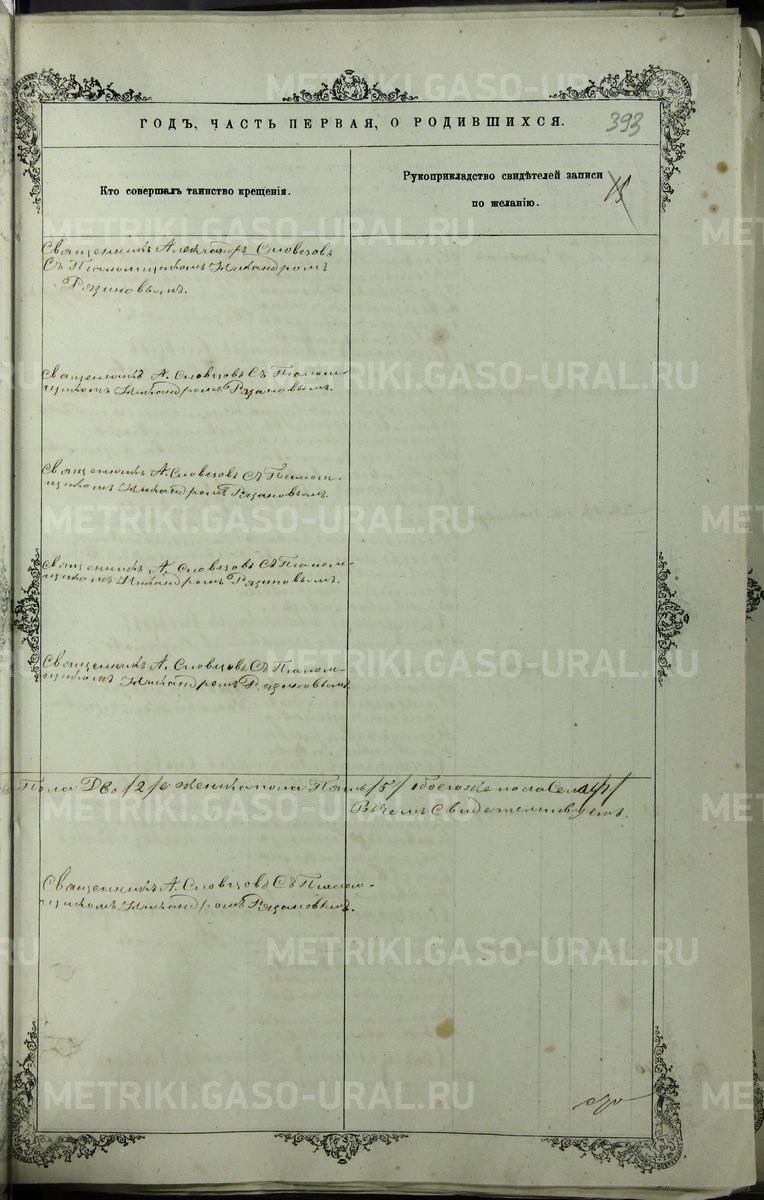 METRIKI.GASO-URAL.RU
393
ГОДЪ, ЧАСТЬ ПЕРВАЯ, О РОДИВШИХСЯ.
Кто совершалъ таинство крещенія.
Рукоприкладство свидѣтелей записи
по желанію.
Священникъ Александръ Словцовъ
Съ Псаломщикомъ Никандромъ
Рязановымъ.
Священникъ А. Словцовъ Съ Псалом-
щикомъ Никандромъ Рязановымъ.
Священникъ А. Словцовъ Съ Псалом-
щикомъ Никандромъ Рязановымъ.
Священникъ А. Словцовъ Съ Псалом-
щикомъ Никандромъ Рязановымъ.
Священникъ А. Словцовъ Съ Псалом-
щикомъ Никандромъ Рязановымъ
Пола Два /2/ а женска пола Пять /5/ обоего же пола Семь /7/
Въ чемъ Свидетельствуемъ.
Священникъ А. Словцовъ Съ Псалом-
щикомъ Никандромъ Рязановымъ.